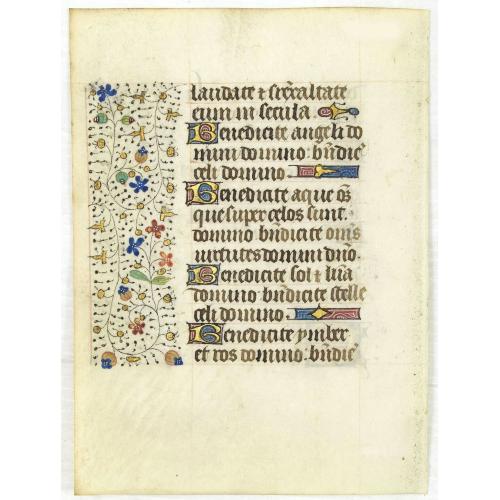 laudate ⁊ sup̄exaltate
eum in secula
Benedicite angeli do
mini domino: bn̄dic̄
celi domino
Benedicite aque om̄s
que super celos sunt.
domino bn̄dicite om̄s
virtutes domini dn̄o.
Benedicite sol ⁊ luna
domino bn̄dicite stelle
celi domino.
Benedicite ymber
et ros domino: bn̄dic̄